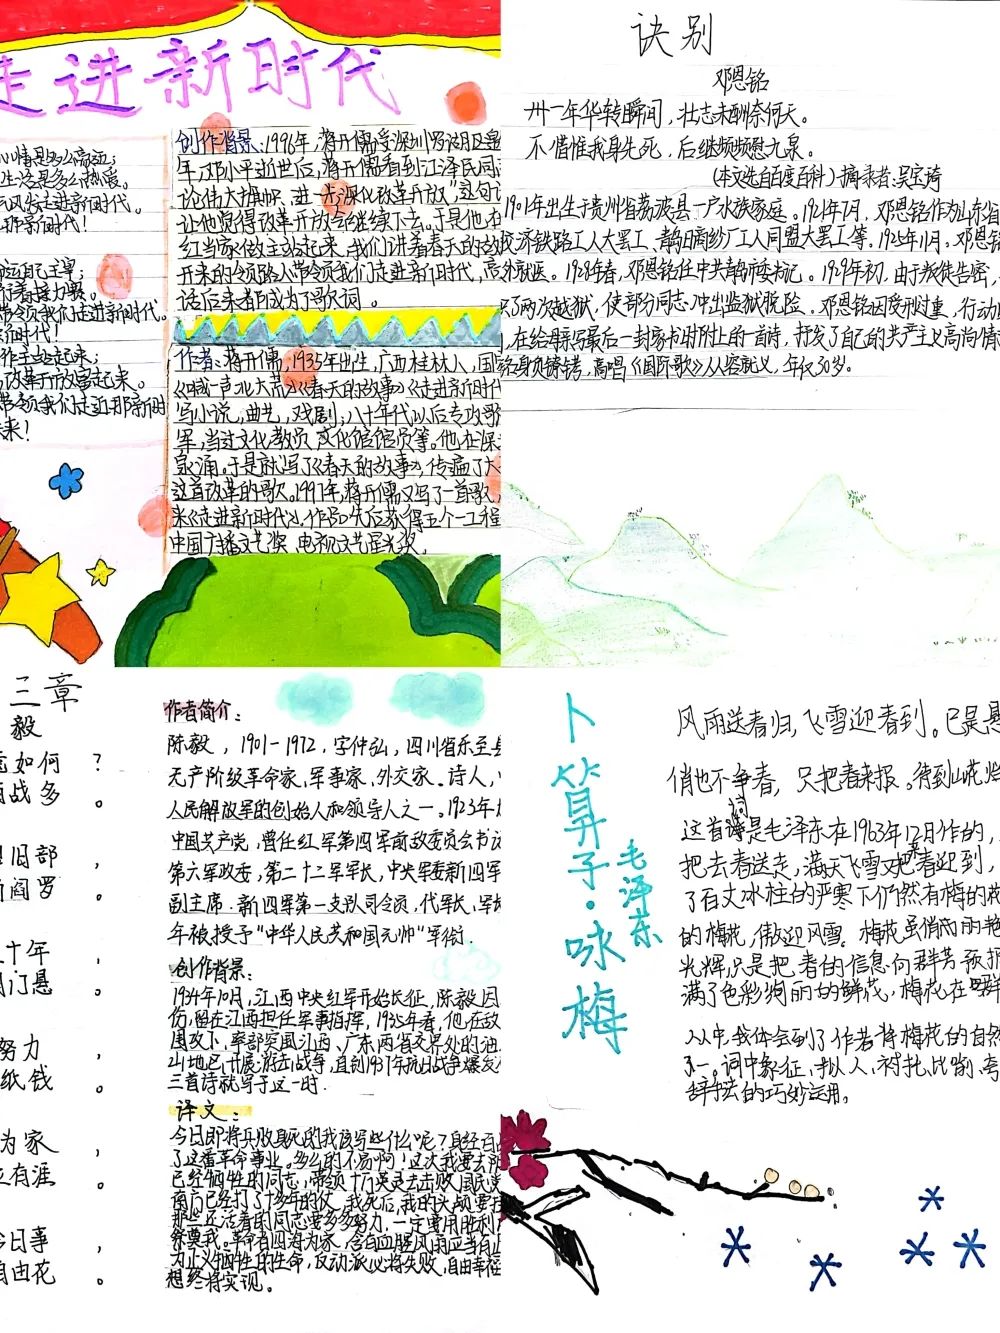 走进新时代
创作背景:1996年,蒋开儒受深圳罗湖区邀
年,邓小平逝世后,蒋开儒看到江泽民同志
论伟大旗帜,进一步深化改革开放",这句话
让他觉得改革开放会继续下去。于是他在
红当家做主站起来,我们讲着春天的故
开来的领路人带领我们走进新时代,高
话后来都成为了歌词。
心情是多么高远;
生活是多么热爱。
东风我走进新时代。
那新时代!
主宰;
带领我们走进新时代。
新时代!
作主站起来;
改革开放富起来。
带领我们走进那新时
未来!
作者:蒋开儒,1935年出生,广西桂林人,国
《喊一声北大荒》《春天的故事》《走进新时代
写小说,曲艺,戏剧;八十年代以后专攻歌
军,当过文化教员,文化馆馆员等。他在深
泉涌。于是就写了《春天的故事》,传遍了大
这首改革的歌。1997年,蒋开儒又写了一首歌,
来《走进新时代》,作品先后获得五个一工程
中国广播文艺奖,电视文艺星光奖。
诀别
邓恩铭
卅一年华转瞬间,壮志未酬奈何天。
不惜惟我身先死,后继频频慰九泉。
(本文选自百度百科)摘录者:吴宝琦
1901年出生于贵州省荔波县一户水族家庭。1921年7月,邓恩铭作为山东省
胶济铁路工人大罢工、青岛日商纱厂工人同盟大罢工等。1925年11月,邓恩铭
外就医。1928年春,邓恩铭任中共青岛市委书记。1929年初,由于叛徒告密,
了两次越狱,使部分同志冲出监狱脱险。邓恩铭因受刑过重,行动
,在给母亲写最后一封家书时附上的一首诗,抒发了自己的共产主义高尚情
铭身负镣铐,高唱《国际歌》从容就义,年仅30岁。
三章
毅
如何?
战多。
旧部,
阎罗。
十年
门悬。
努力,
纸钱。
为家,
有涯。
今日事,
自由花。
作者简介:
陈毅,1901-1972,字仲弘,四川省乐至县
无产阶级革命家、军事家、外交家、诗人,
人民解放军的创始人和领导人之一。1923年加
中国共产党,曾任红军第四军前敌委员会书记
第六军政委,第二十二军军长,中央军委新四军
副主席、新四军第一支队司令员,代军长、军
年被授予"中华人民共和国元帅"军衔.
创作背景:
1934年10月,江西中央红军开始长征,陈毅因
伤,留在江西担任军事指挥,1935年春,他在敌
围攻下,率部突围江西、广东两省交界处的油
山地区,开展游击战争,直到1937年抗日战争爆发
三首诗就写于这一时.
译文:
今日即将兵败身死的我该写些什么呢?身经百
了这番革命事业。多么的不易啊!这次我要去阴
已经牺牲的同志,带领十万英灵去击败国民党
南方已经打了十多年的仗,我死后,我的头颅要挂
那些还活着的同志要多多努力,一定要用胜利
祭奠我。革命者四海为家,含着血腥风雨应当有
为正义牺牲的生命,反动派必将失败,自由幸福
想终将实现。
卜算子·咏梅
毛泽东
风雨送春归,飞雪迎春到。已是悬
俏也不争春,只把春来报。待到山花烂
这首词是毛泽东在1963年12月作的,
把去春送走,满天飞雪又把春迎到,
了百丈冰柱的严寒下仍然有梅的
的梅花,傲迎风雪。梅花虽俏而丽艳
光辉,只是把春的信息向群芳预报
满了色彩绚丽的鲜花,梅花在
从中,我体会到了作者将梅花的自然
了一。词中象征,拟人,衬托,比喻,夸
辞手法的巧妙运用。